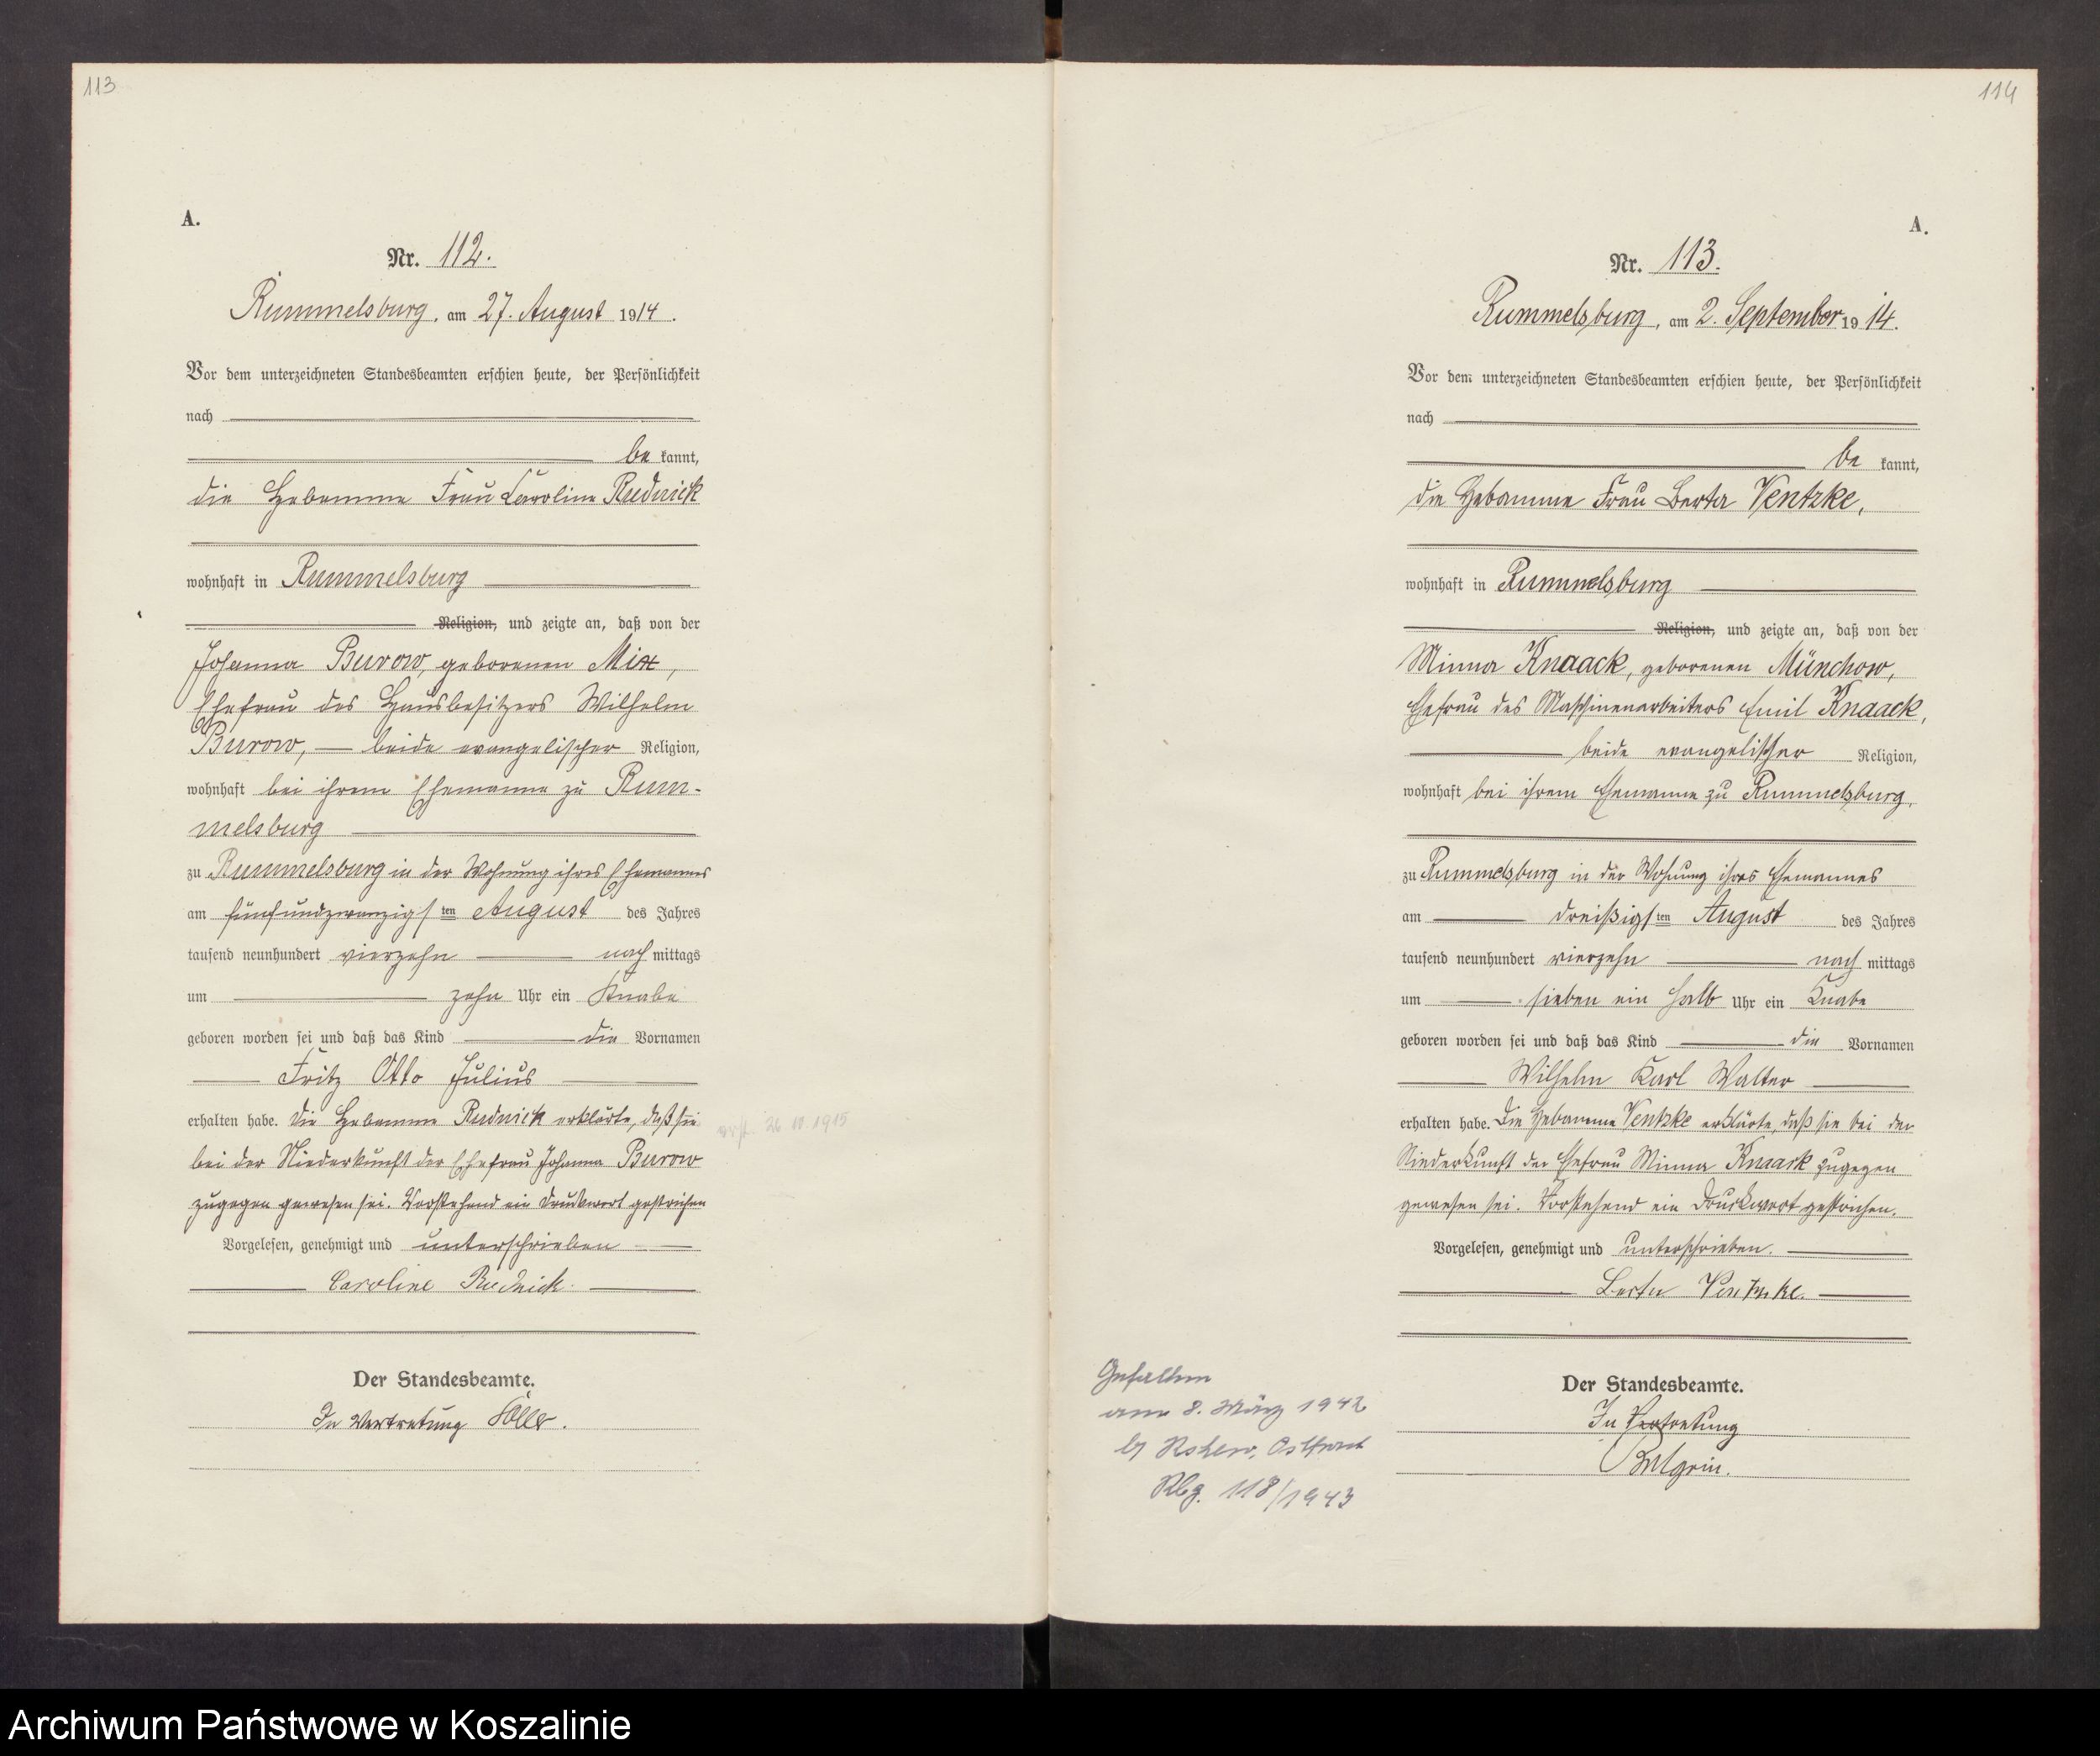 113
A.
Nr. 112.
Rummelsburg, am 27. August 1914.
Vor dem unterzeichneten Standesbeamten erschien heute, der Persönlichkeit
nach
be kannt,
die Hebamme Frau Caroline Rudnick
wohnhaft in Rummelsburg
Religion, und zeigte an, daß von der
Johanna Burow, geborenen Mix,
Ehefrau des Hausbesitzers Wilhelm
Burow, — beide evangelischer Religion,
wohnhaft bei ihrem Ehemanne zu Rum-
melsburg
zu Rummelsburg in der Wohnung ihres Ehemannes
am fünfundzwanzigsten August des Jahres
tausend neunhundert vierzehn nach mittags
um zehn Uhr ein Knabe
geboren worden sei und daß das Kind die Vornamen
Fritz Otto Julius
erhalten habe. Die Hebamme Rudnick erklärte, daß sie
bei der Niederkunft der Ehefrau Johanna Burow
zugegen gewesen sei. Vorstehend ein Druckwort gestrichen
Vorgelesen, genehmigt und unterschrieben
Caroline Rudnick.
Der Standesbeamte.
In Vertretung
26.10.1915
114
A.
Nr. 113.
Rummelsburg, am 2. September 1914.
Vor dem unterzeichneten Standesbeamten erschien heute, der Persönlichkeit
nach
be kannt,
die Hebamme Frau Berta Ventzke,
wohnhaft in Rummelsburg
Religion, und zeigte an, daß von der
Minna Knaack, geborenen Münchow,
Ehefrau des Maschinenarbeiters Emil Knaack,
beide evangelischer Religion,
wohnhaft bei ihrem Ehemanne zu Rummelsburg,
zu Rummelsburg in der Wohnung ihres Ehemannes
am dreißigsten August des Jahres
tausend neunhundert vierzehn nach mittags
um sieben ein halb Uhr ein Knabe
geboren worden sei und daß das Kind die Vornamen
Wilhelm Karl Walter
erhalten habe. Die Hebamme Ventzke erklärte, daß sie bei der
Niederkunft der Ehefrau Minna Knaack zugegen
gewesen sei. Vorstehend ein Druckwort gestrichen.
Vorgelesen, genehmigt und unterschrieben.
Berta Ventzke.
Der Standesbeamte.
In Vertretung
Gefallen
am 8. März 1942
b/ Rshew, Ostfront
Rbg. 118/1943
Archiwum Państwowe w Koszalinie